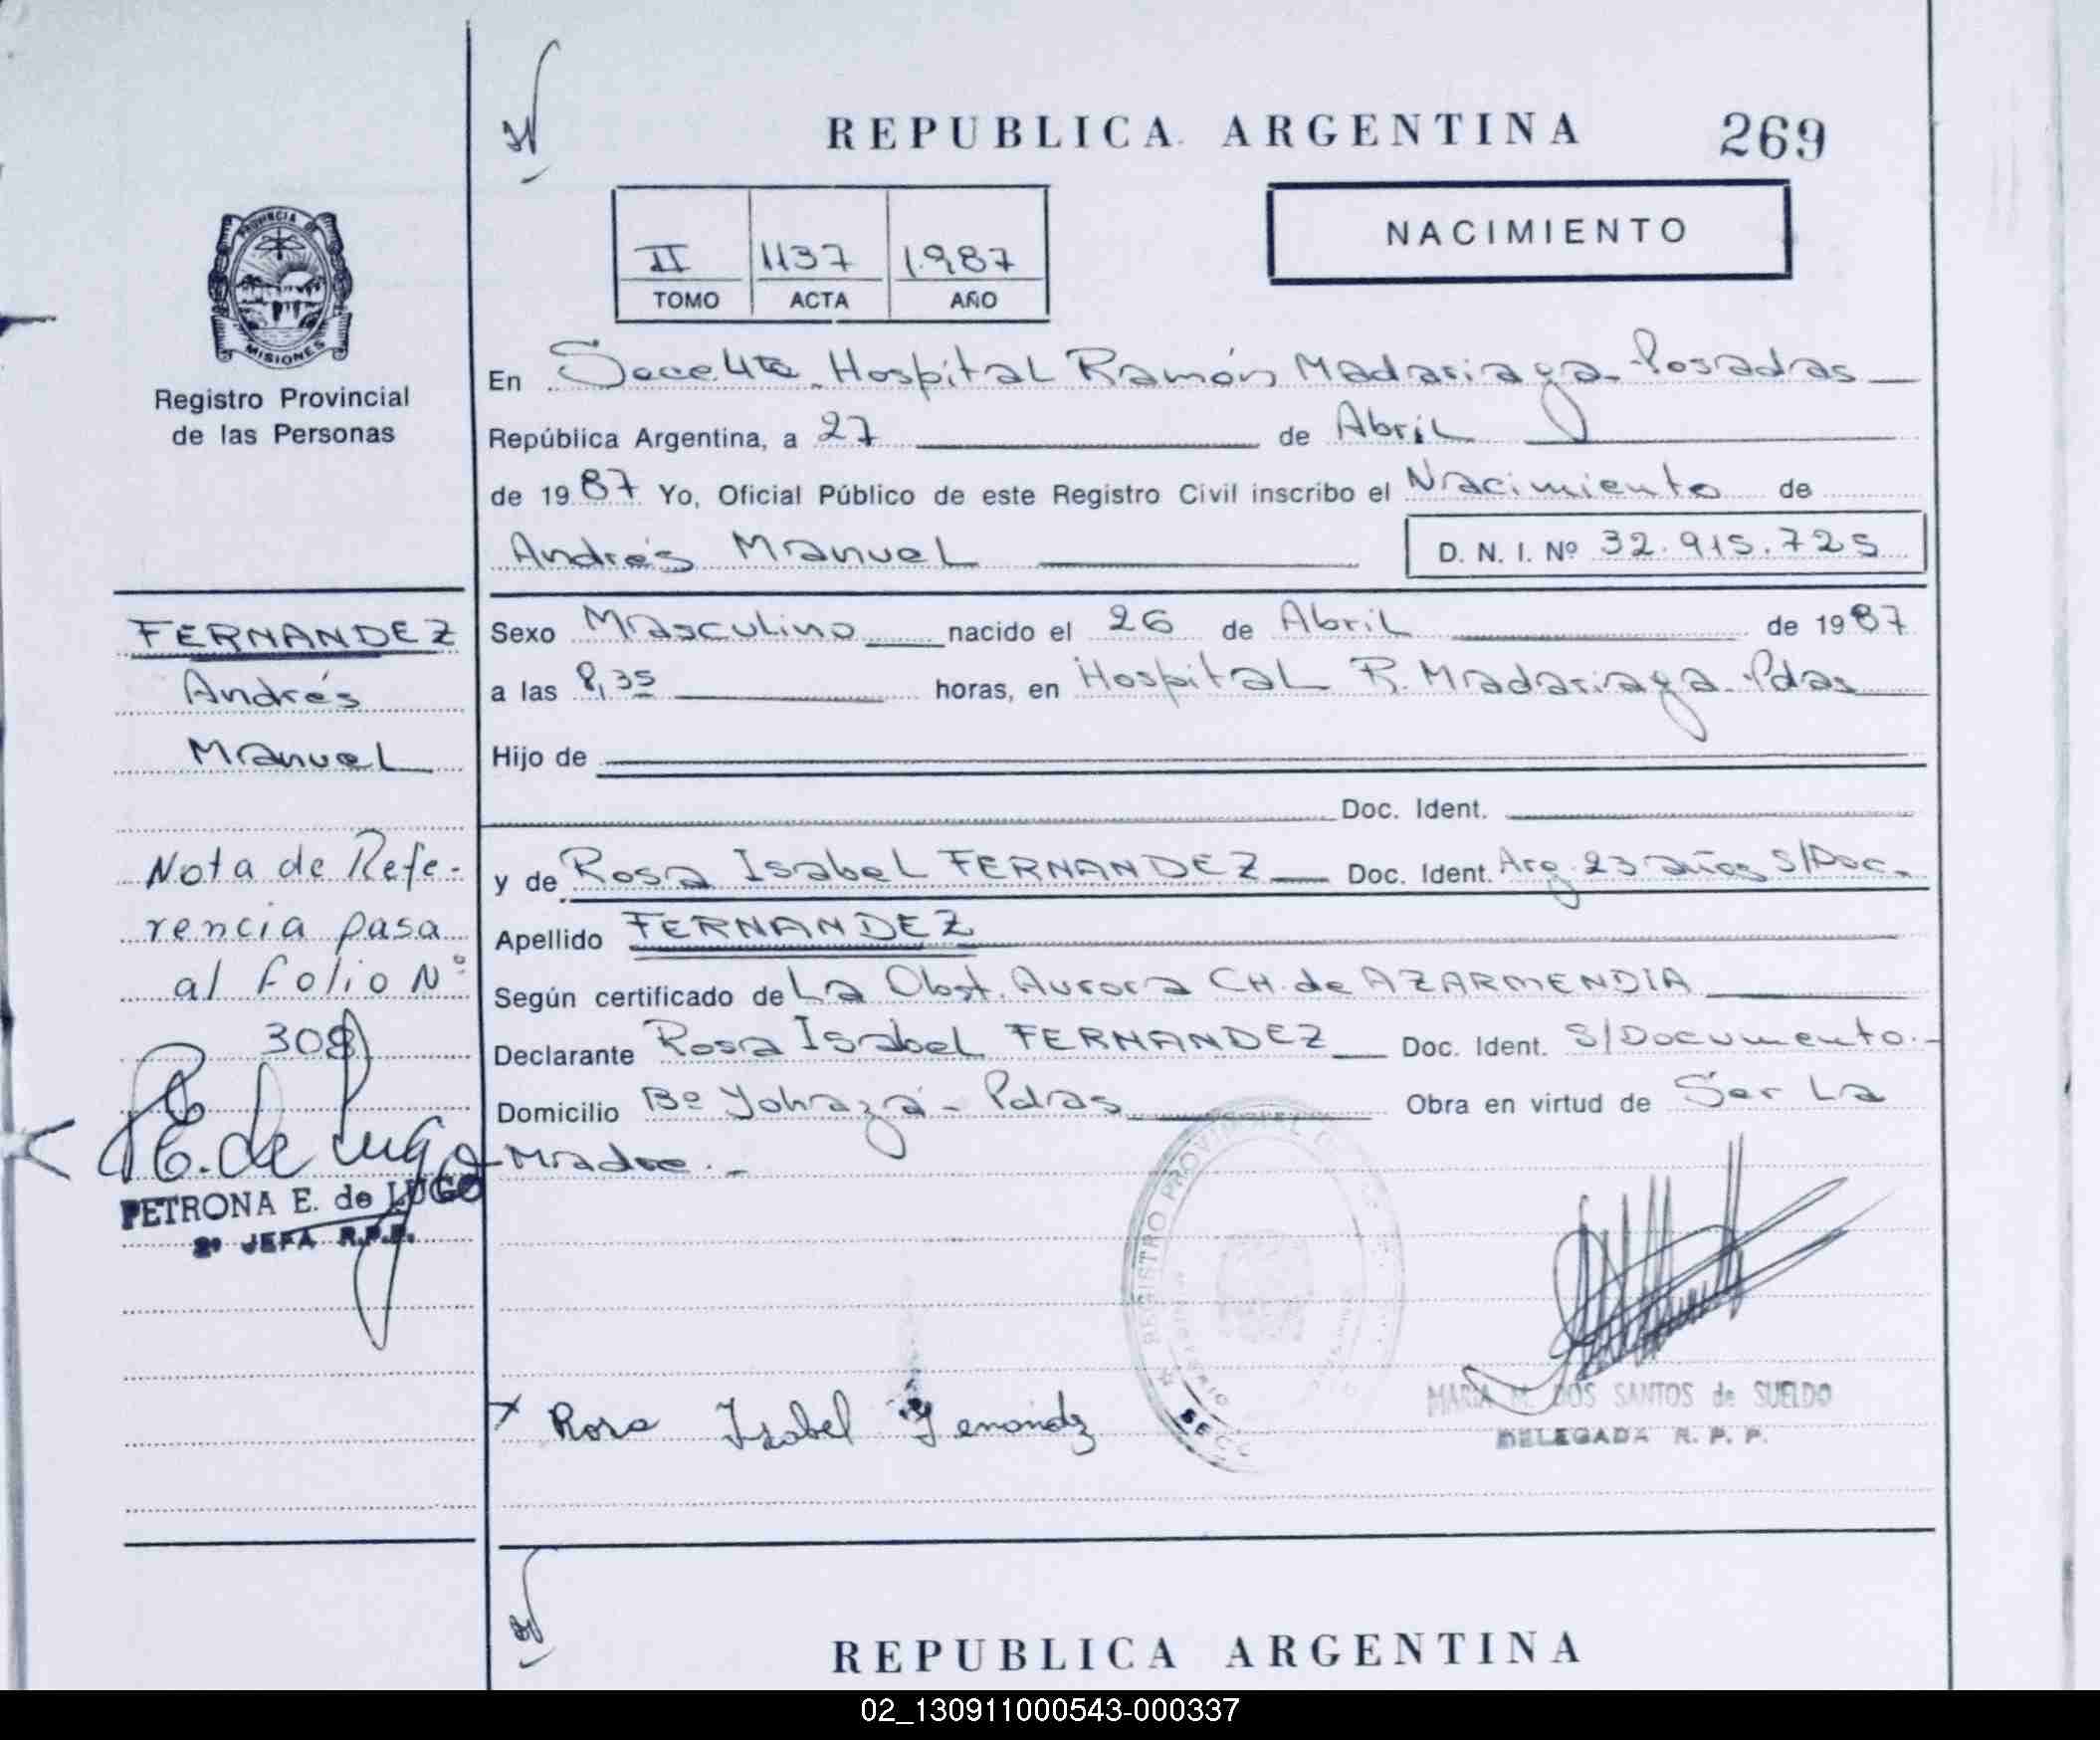 REPUBLICA ARGENTINA
269
II 1137 1.987
TOMO ACTA AÑO
NACIMIENTO
PROVINCIA DE
MISIONES
Registro Provincial
de las Personas
En Secc. 4ta. Hospital Ramón Madariaga - Posadas
República Argentina, a 27 de Abril
de 1987 Yo, Oficial Público de este Registro Civil inscribo el Nacimiento de
Andrés Manuel
D. N. I. Nº 32.915.725
Sexo Masculino nacido el 26 de Abril de 1987
a las 8,35 horas, en Hospital R. Madariaga - Pdas
Hijo de
Doc. Ident.
y de Rosa Isabel FERNANDEZ Doc. Ident. Arg. 23 años S/Doc.
Apellido FERNANDEZ
Según certificado de La Obst. Aurora CH. de AZARMENDIA
Declarante Rosa Isabel FERNANDEZ Doc. Ident. S/Documento.-
Domicilio Bº Yohazá - Pdas Obra en virtud de Ser La
Madre.-
FERNANDEZ
Andrés
Manuel
Nota de Refe-
rencia pasa
al folio Nº
308
P.E. de Lugo
PETRONA E. de LUGO
2º JEFA R.P.P.
REGISTRO PROVINCIAL
SECC
x Rosa Isabel Fernandz
MARIA M. DOS SANTOS de SUELDO
DELEGADA R. P. P.
REPUBLICA ARGENTINA
02_130911000543-000337